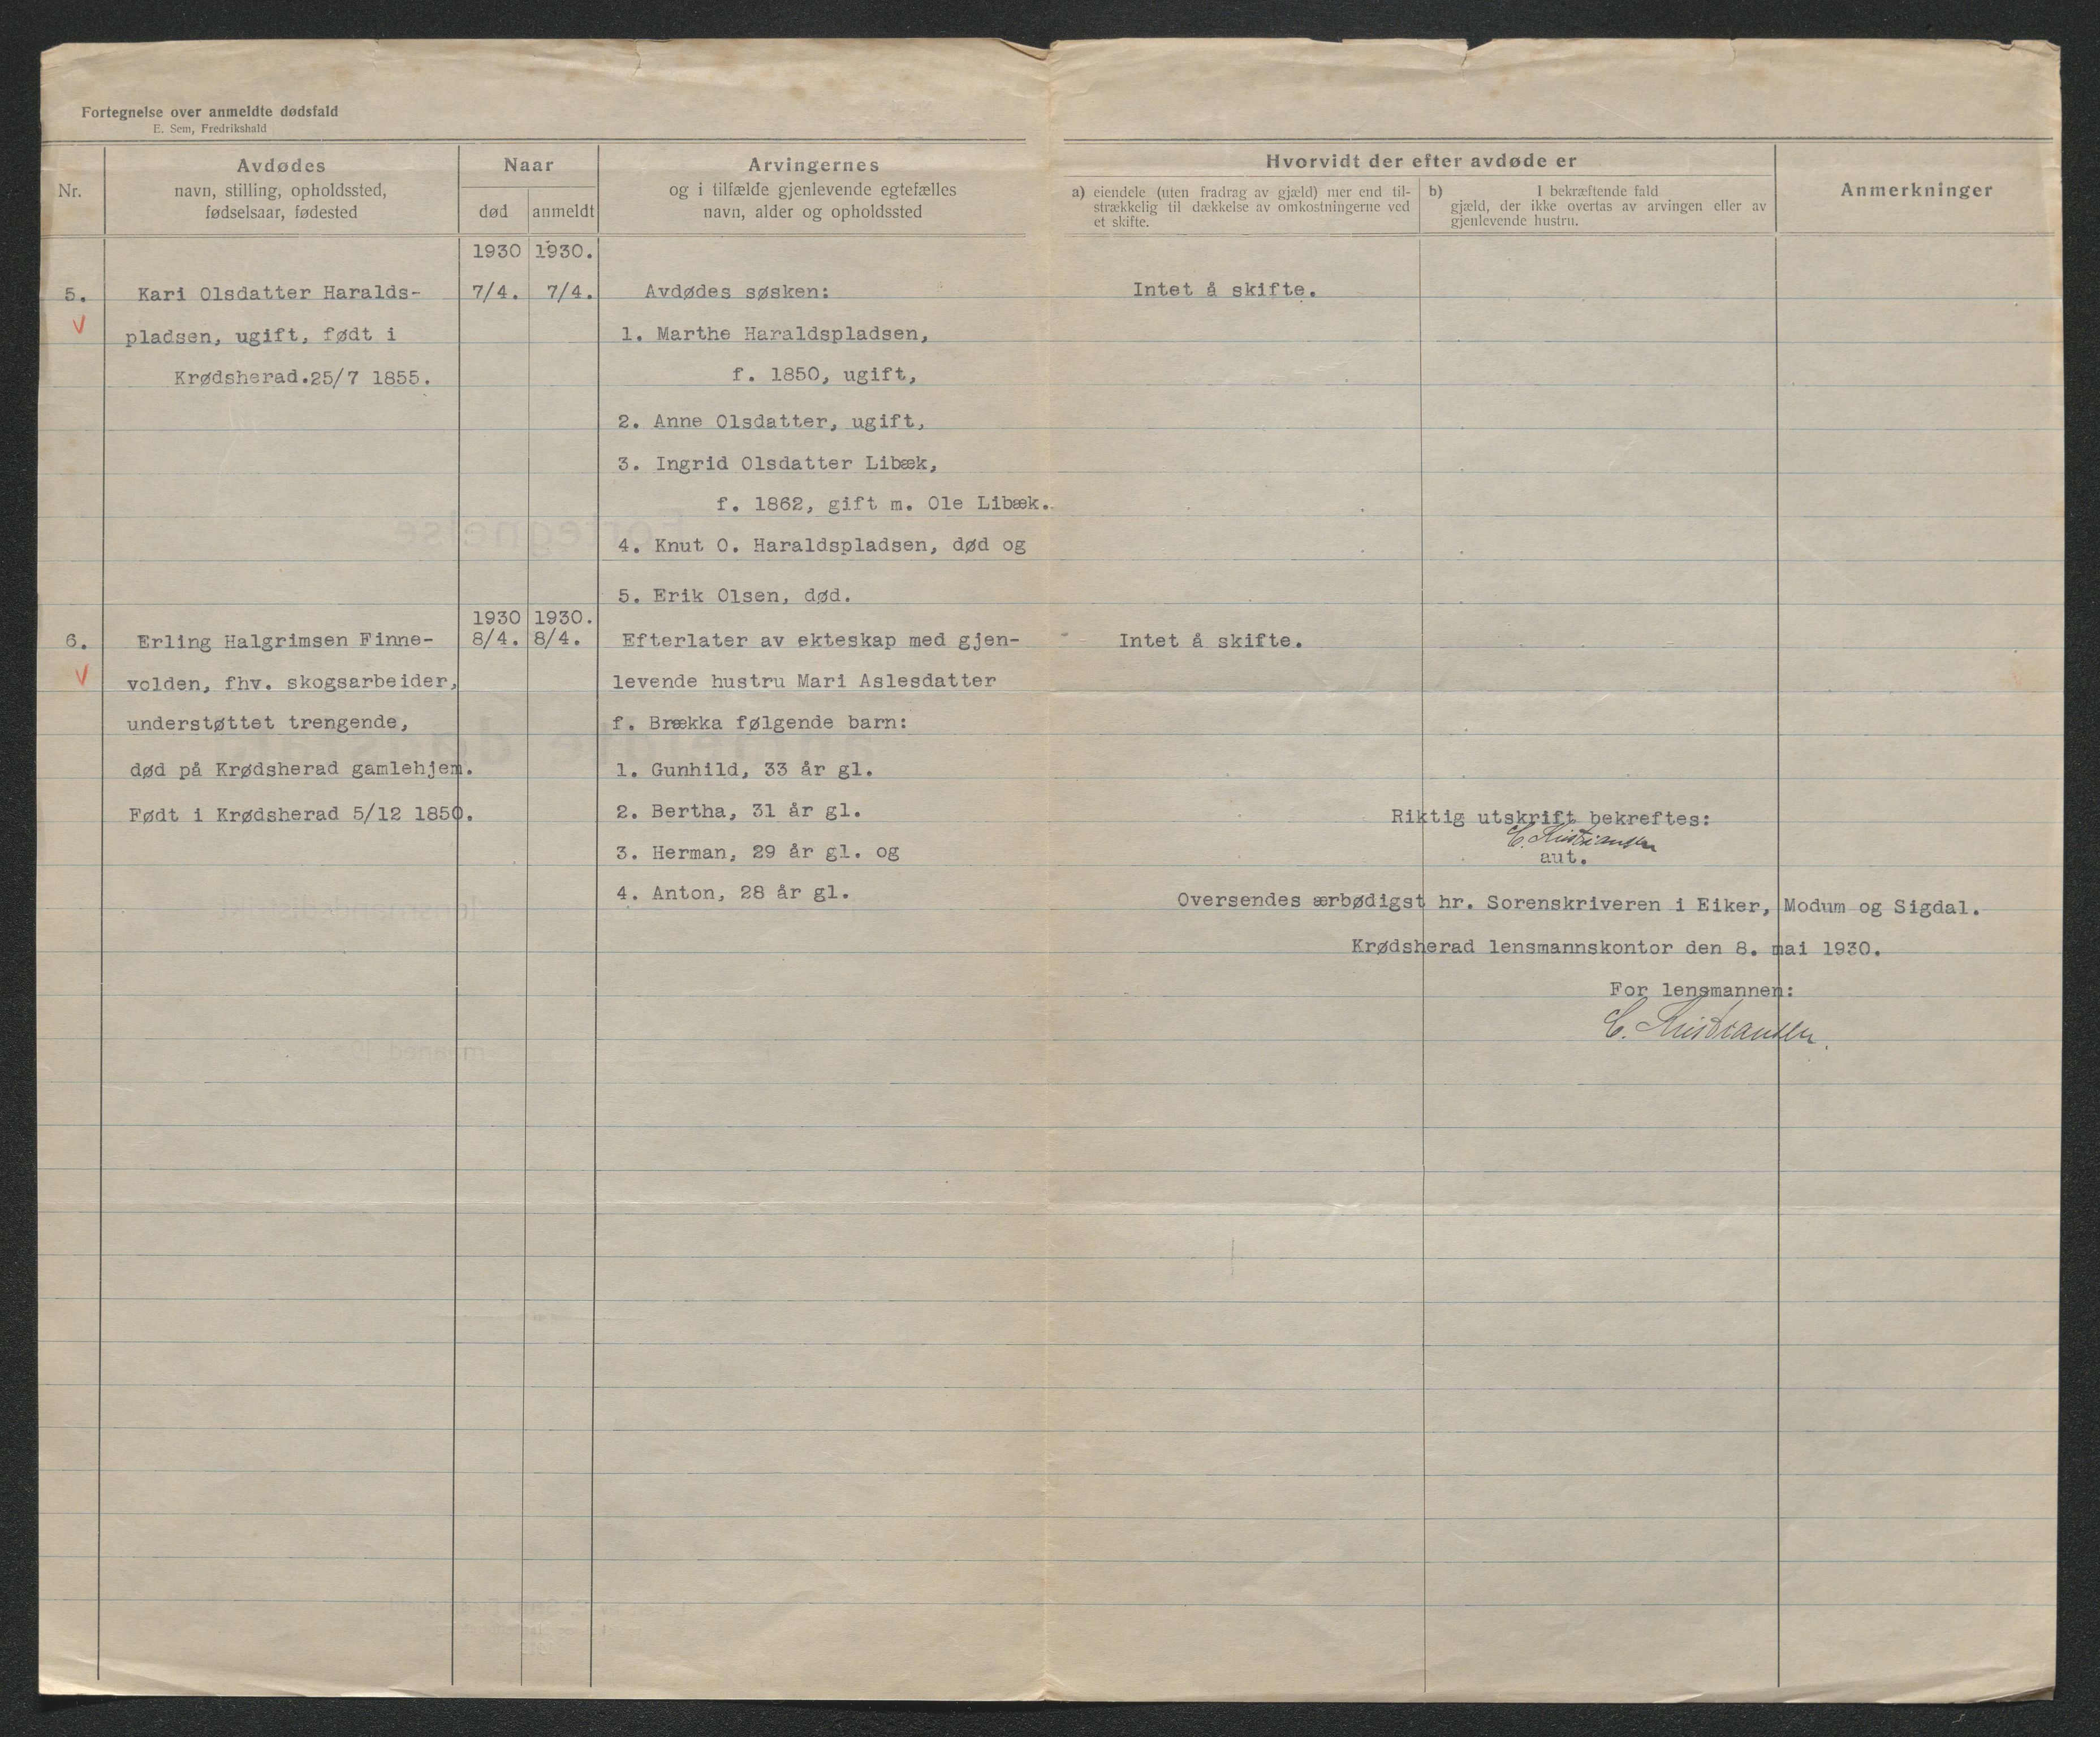 Fortegnelse over anmeldte dødsfald
E. Sem, Fredrikshald
Nr.
Avdødes
navn, stilling, opholdssted,
fødselsaar, fødested
Naar
død
anmeldt
Arvingernes
og i tilfælde gjenlevende egtefælles
navn, alder og opholdssted
Hvorvidt der efter avdøde er
a) eiendele (uten fradrag av gjæld) mer end til-
strækkelig til dækkelse av omkostningerne ved
et skifte.
b) I bekræftende fald
gjæld, der ikke overtas av arvingen eller av
gjenlevende hustru.
Anmerkninger
1930 1930.
5. Kari Olsdatter Haralds- 7/4. 7/4. Avdødes søsken: Intet å skifte.
V
pladsen, ugift, født i 1. Marthe Haraldspladsen,
Krødsherad.25/7 1855. f. 1850, ugift,
2. Anne Olsdatter, ugift,
3. Ingrid Olsdatter Libæk,
f. 1862, gift m. Ole Libæk.
4. Knut O. Haraldspladsen, død og
5. Erik Olsen, død.
1930 1930.
6. Erling Halgrimsen Finne- 8/4. 8/4. Efterlater av ekteskap med gjen- Intet å skifte.
V
volden, fhv. skogsarbeider, levende hustru Mari Aslesdatter
understøttet trengende, f. Brækka følgende barn:
død på Krødsherad gamlehjem. 1. Gunhild, 33 år gl.
Født i Krødsherad 5/12 1850. 2. Bertha, 31 år gl.
3. Herman, 29 år gl. og
4. Anton, 28 år gl.
Riktig utskrift bekreftes:
C. Kristiansen
aut.
Oversendes ærbødigst hr. Sorenskriveren i Eiker, Modum og Sigdal.
Krødsherad lensmannskontor den 8. mai 1930.
For lensmannen:
C. Kristiansen.